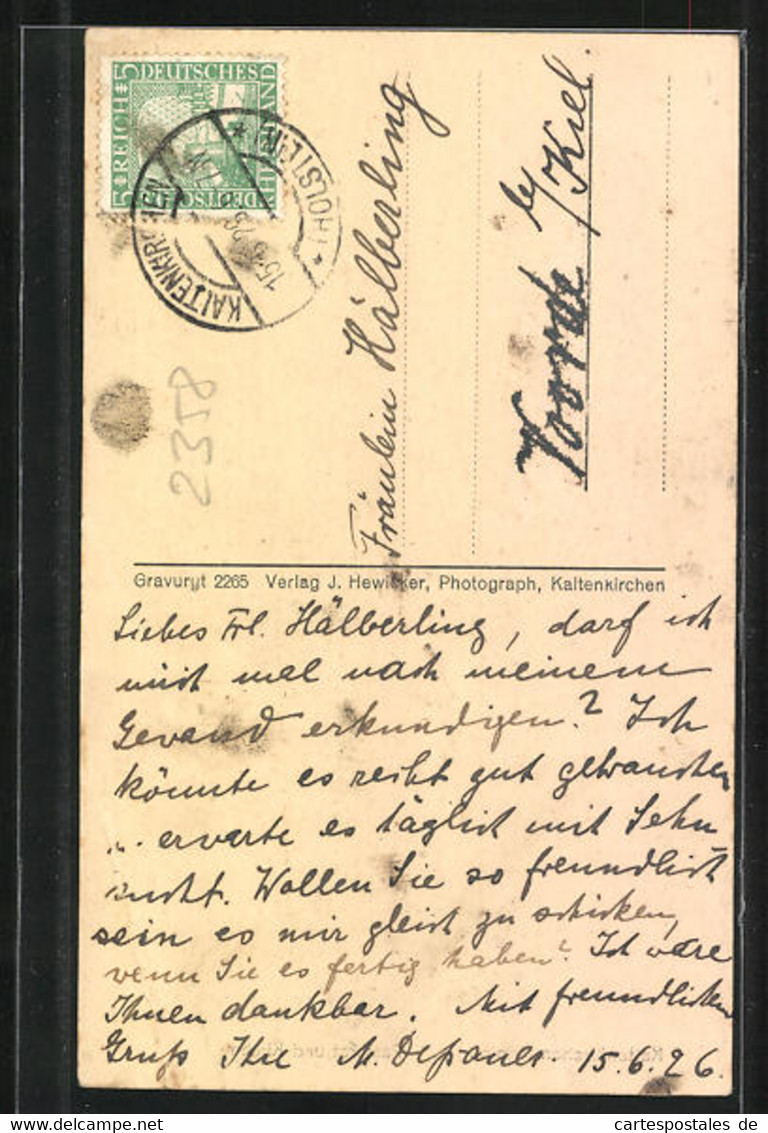 DEUTSCHES REICH
5
KALTENKIRCHEN (HOLSTEIN)
Fräulein Hälberling
Voorde b/Kiel.
2358
Gravuryt 2265 Verlag J. Hewicker, Photograph, Kaltenkirchen
Liebes Frl. Hälberling, darf ich
mich mal nach meinem
Gewand erkundigen? Ich
könnte es recht gut gebrauchen
u. erwarte es täglich mit Sehn
sucht. Wollen Sie so freundlich
sein es mir gleich zu schicken,
wenn Sie es fertig haben? Ich wäre
Ihnen dankbar. Mit freundlichem
Gruß Ihre M. 15.6.26.
www.cartespostales.eu
cartespostales de